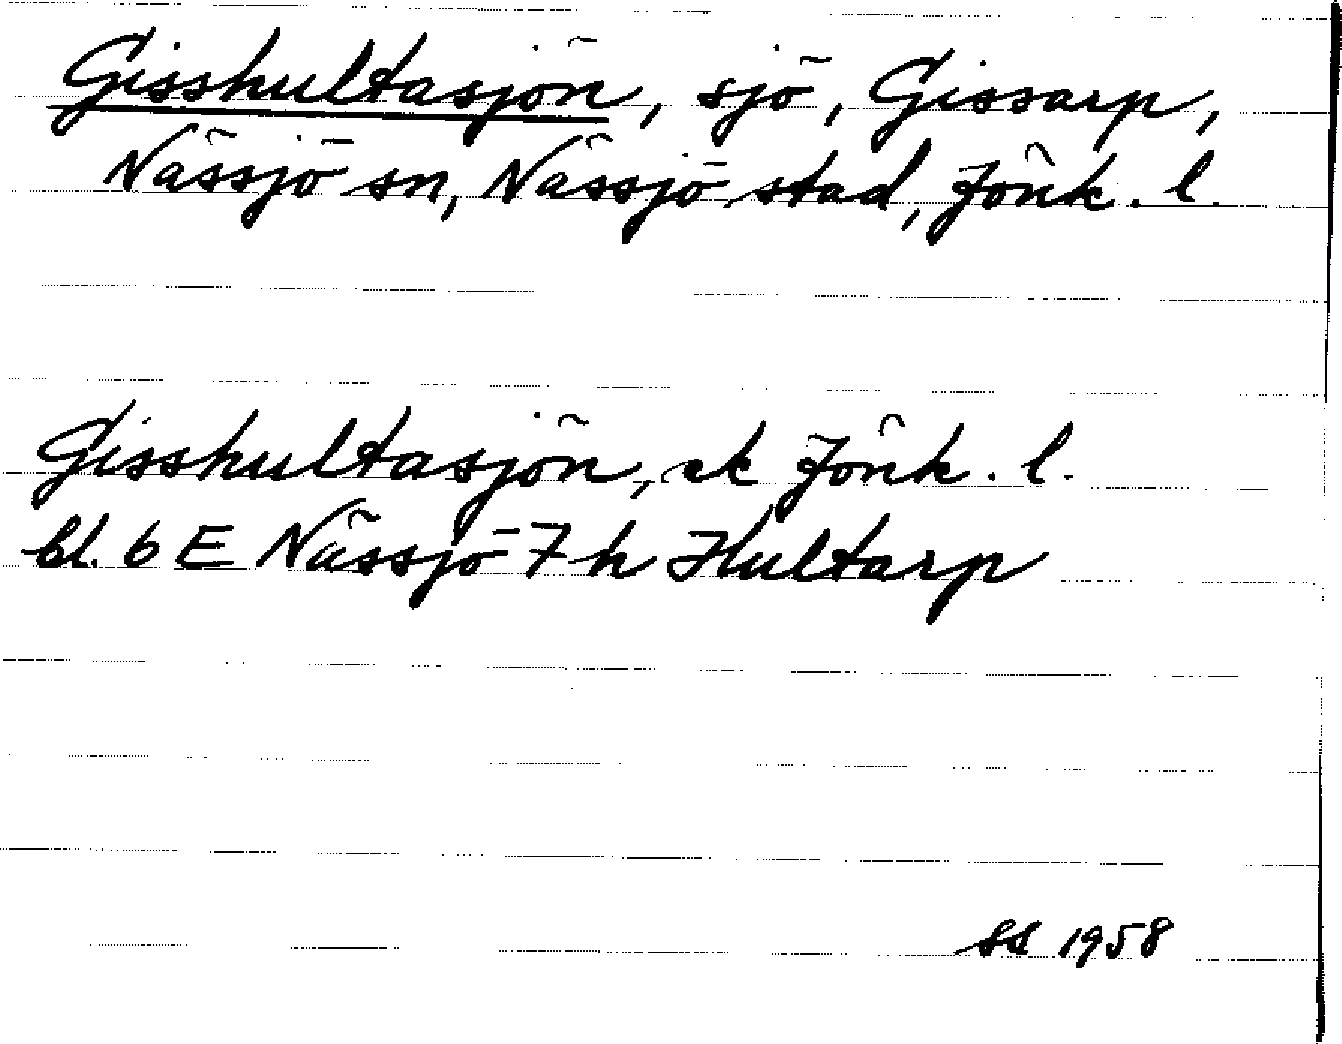 Gisshultasjön, sjö, Gissarp,
Nässjö sn, Nässjö stad, Jönk. l.
Gisshultasjön, ek Jönk. l.
bl. 6 E Nässjö 7 h Hultarp
SS 1958